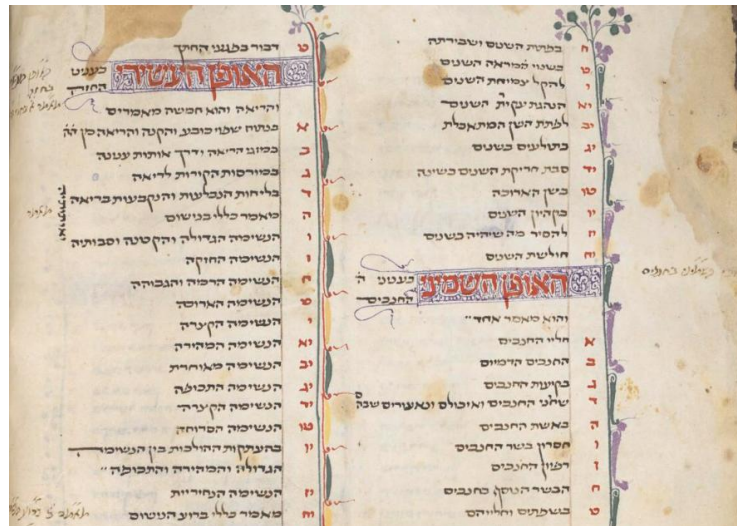 ח בפתת השנים ושבירתה
ט בשנוי המראה השנים
י להקל צמיחת השנים
יא הנהגת עקירת השנים
יב לפתת השן המתאכלת
יג בתולעים בשנים
יד סבת חריקת השנים בשינה
טו בשן הארוכה
יו בקהיון השנים
יז להסיר מה שיהיה בשנים
יח חולשת השנים
האופן השמיני בעניני
החנכים
והוא מאמר אחד
א חליי החנכים
ב החנכים הדמיים
ג בקיעות החנכים
ד שחיני החנכים ואיכולם ונאצורים שבהם
ה באשת החנכים
ו חסרון בשר החנכים
ז רפיון החנכים
ח הבשר הנוסף בחנכים
ט בשפתים וחלייהם
ט דבור בפגעי החיך
האופן העשירי בעניני
החזה
והריאה והוא חמשה מאמרים
א בנתוח שפוי כובע והקנה והריאה מן
ב במיני הריאה ודרך אותות ענינה
ג במורסות הקורות לריאה
ד בליחות הנבלעות והנקבעות בריאה
ה מאמר כללי בנישום
ו הנשימה הגדולה והקטנה וסבותיה
ז הנשימה החזקה
ח הנשימה הרמה והגבוהה
ט הנשימה הארוכה
י הנשימה הקצרה
יא הנשימה המהירה
יב הנשימה מאוחרת
יג הנשימה התכופה
יד הנשימה הקרה
טו הנשימה הסרוחה
יו בהעתקות ההולכות בין הנשימה
הגדולה והמהירה והתכופה
יז הנשימה הנחיריית
יח מאמר כללי ברוע הנישום